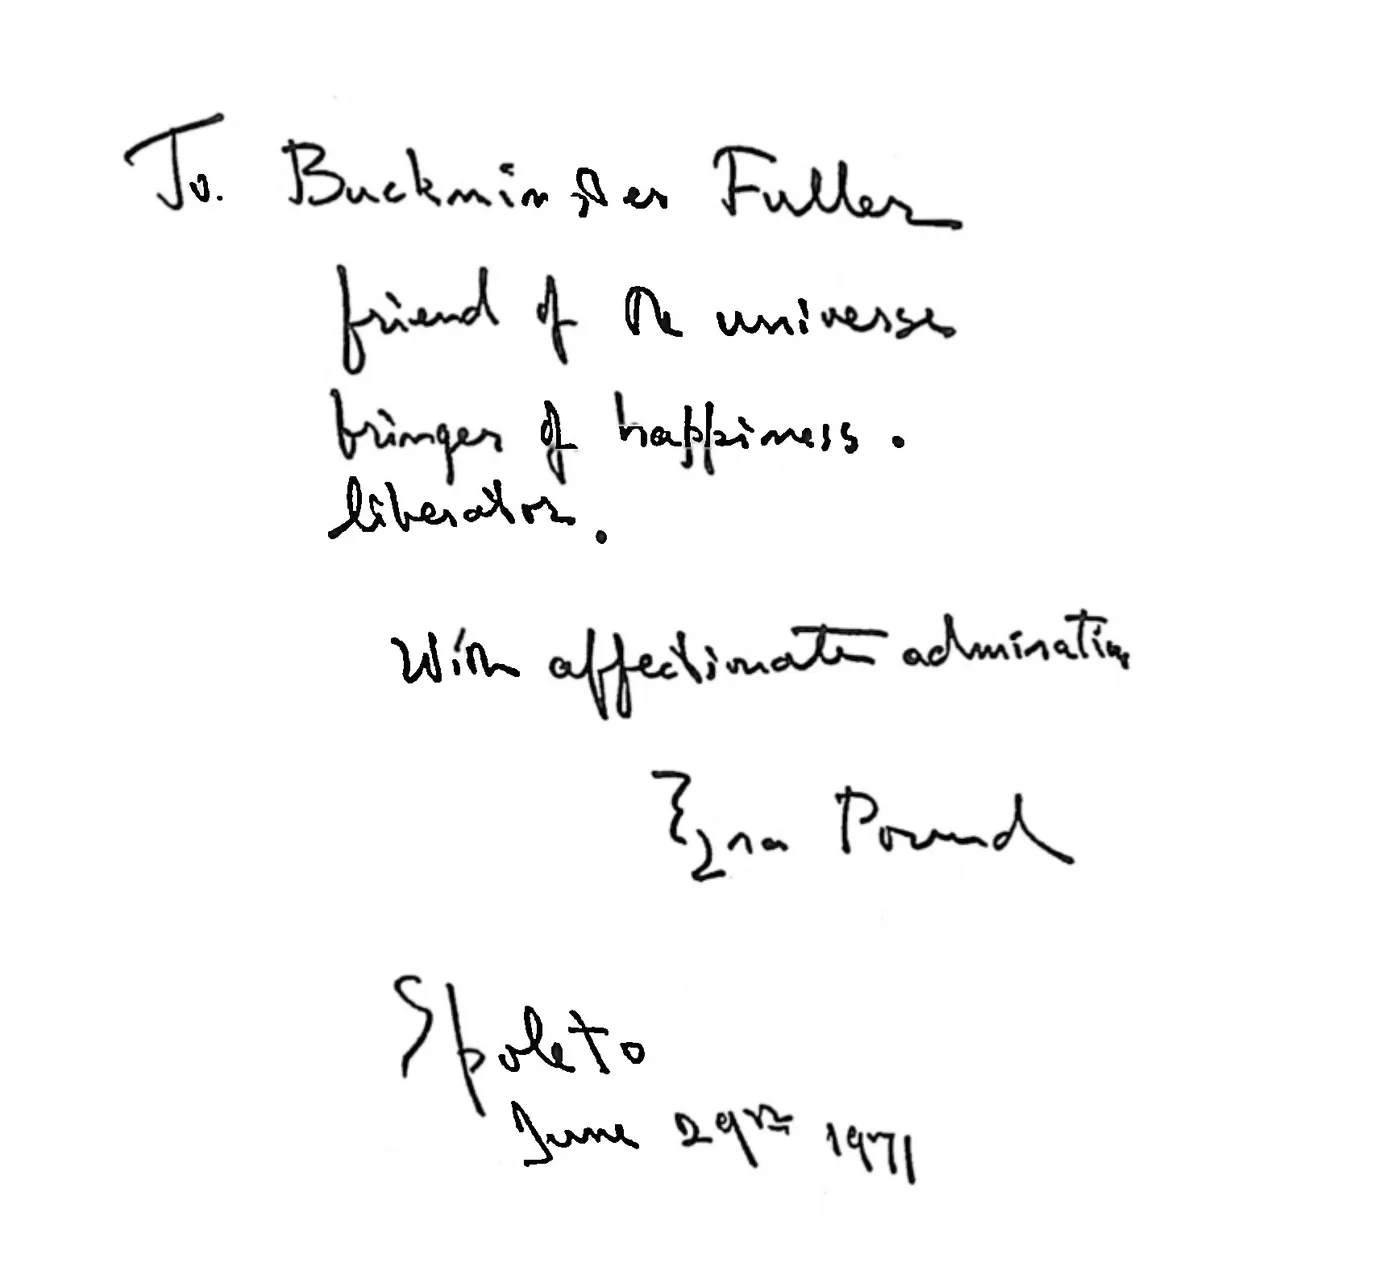 To. Buckminster Fuller
friend of the universe
bringer of happiness.
liberator.
With affectionate admiration
Ezra Pound
Spoleto
June 29th 1971